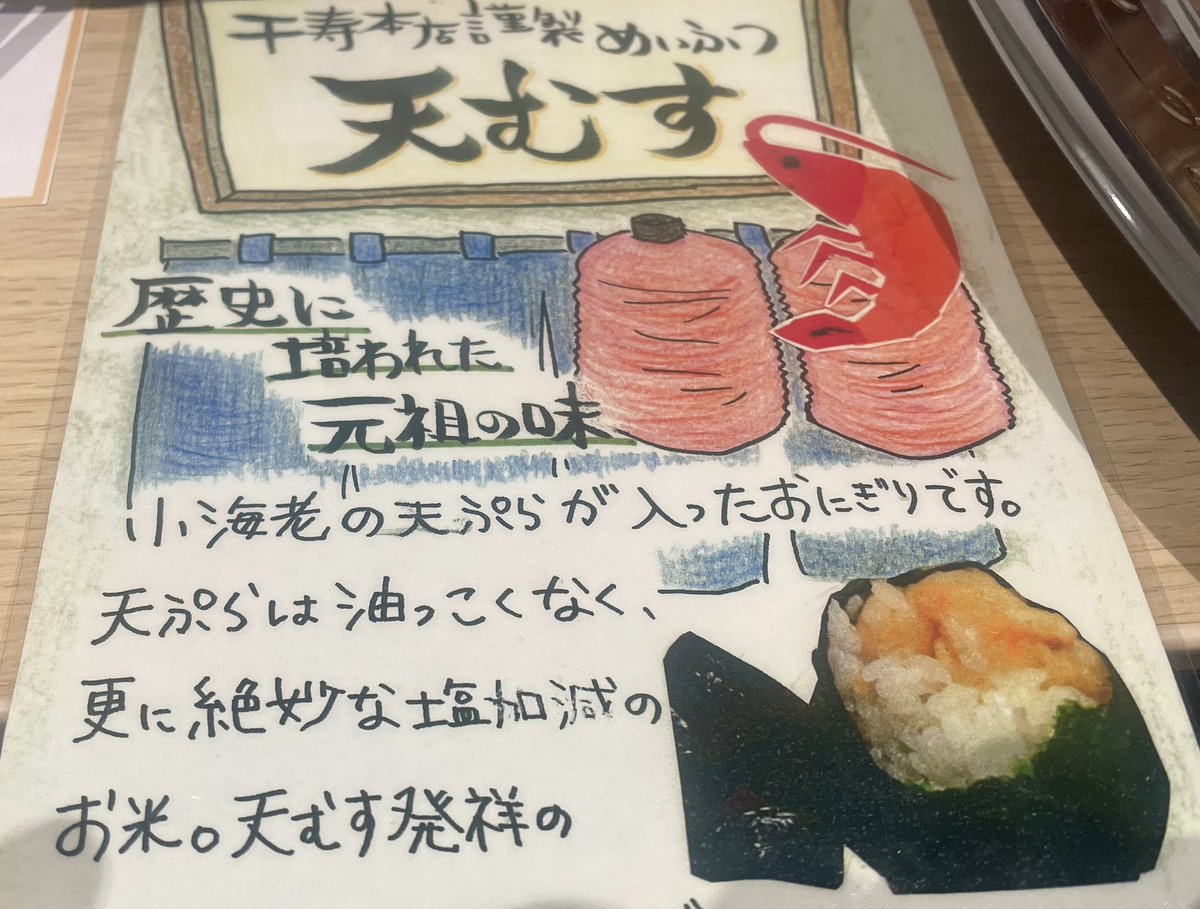 千寿本店謹製 めいふつ
天むす
歴史に
培われた
元祖の味
小海老の天ぷらが入ったおにぎりです。
天ぷらは油っこくなく、
更に絶妙な塩加減の
お米。天むす発祥の